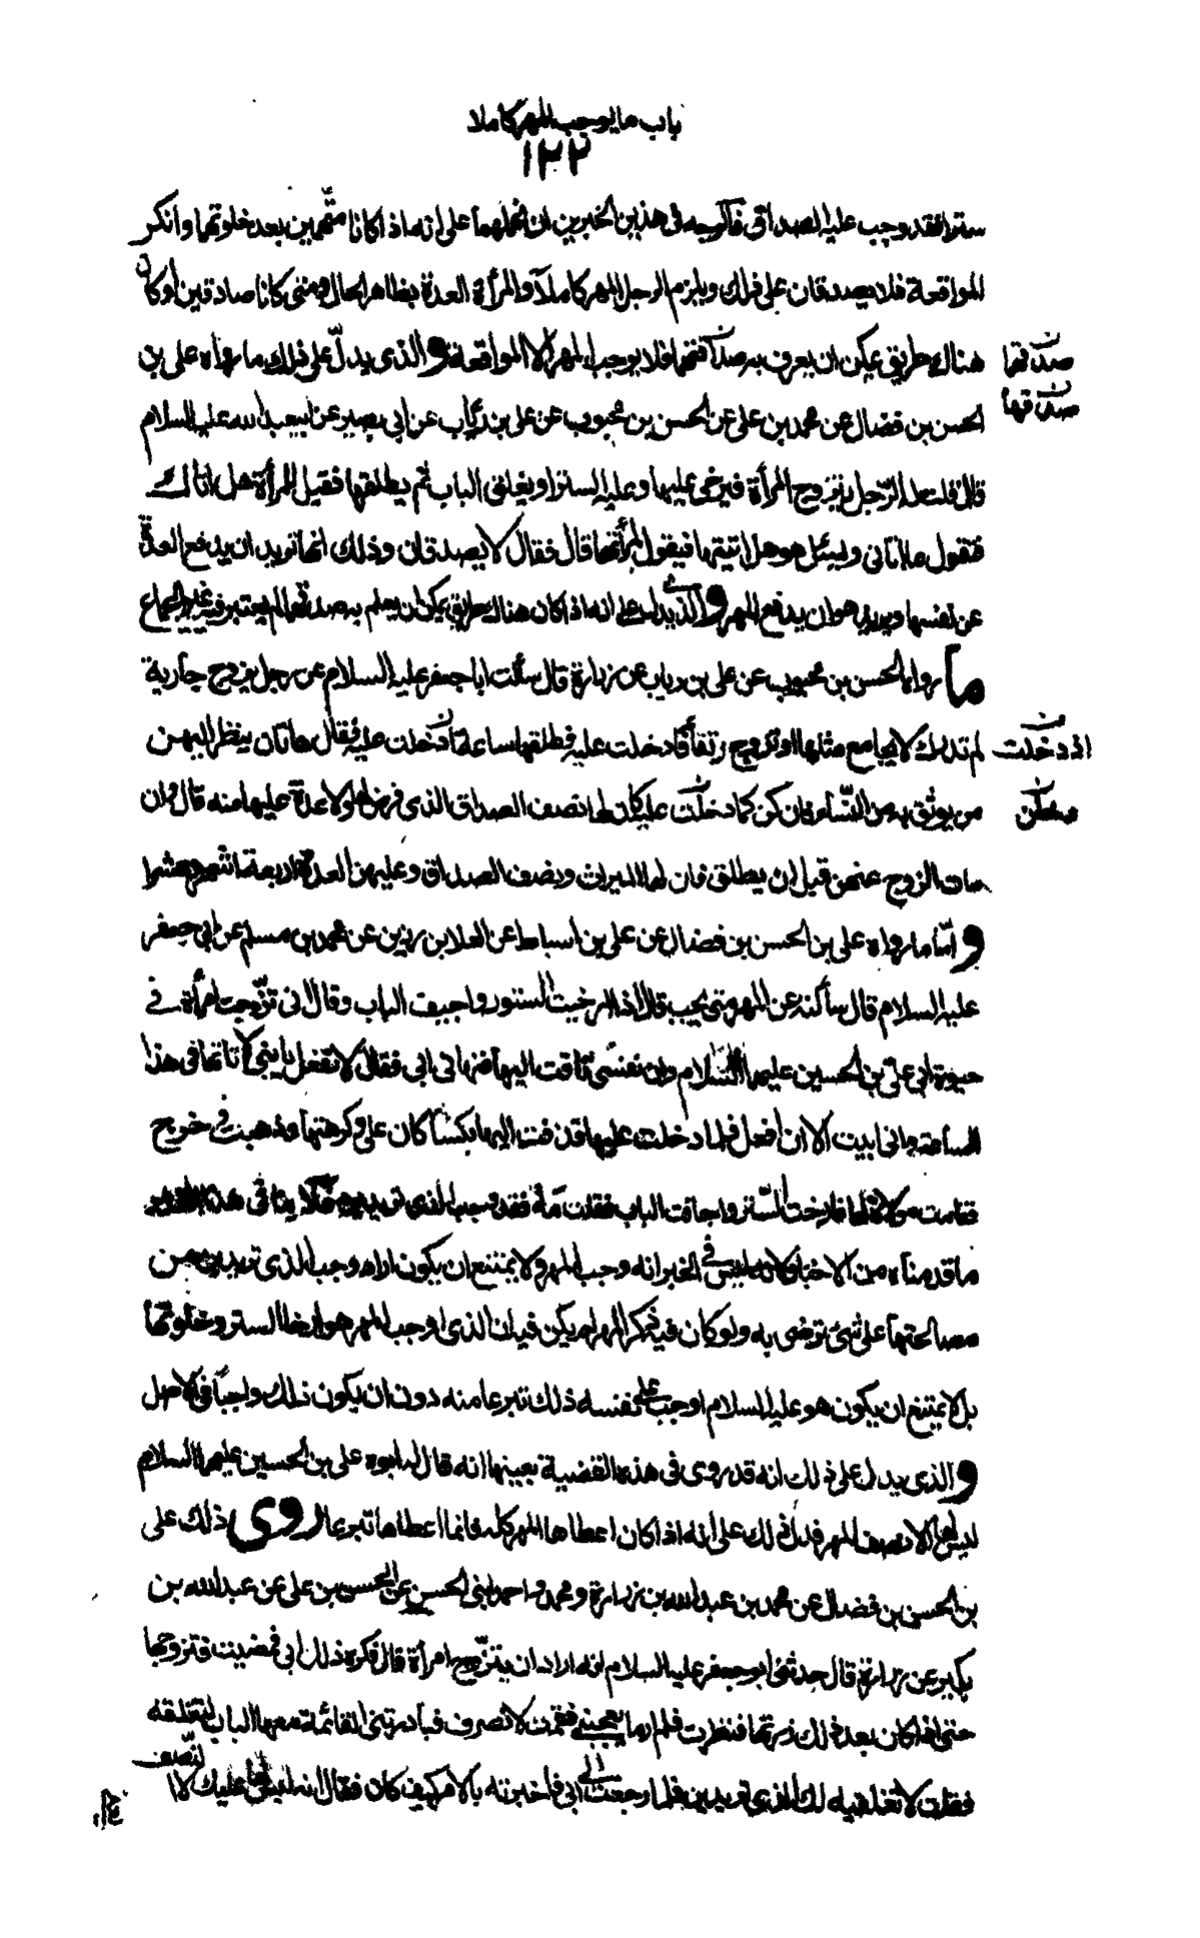 باب ما يوجب المهر كاملا
١٢٢
سترا فقد وجب عليه الصداق فالوجه في هذين الخبرين ان نحملهما على انه اذا كانا متهمين بعد خلوتهما وانكر
المواقعة فلا يصدقان على ذلك ويلزم الرجل المهر كاملا والمرأة العدة بظاهر الحال ومتى كانا صادقين او كان
هناك طريق يمكن ان يعرف به صدقهما فلا يوجب المهر الا المواقعة والذي يدل على ذلك ما رواه على بن
صدقهما
صدقها
الحسن بن فضال عن محمد بن علي عن الحسن بن محبوب عن علي بن رئاب عن ابي بصير عن ابيعبد الله عليه السلام
قال قلت له الرجل يتزوج المرأة فيرخى عليها وعليه الستر او يغلق الباب ثم يطلقها فقيل للمرأة هل اتاك
فتقول ما اتاني ويسئل هو هل اتيتها فيقول لم آتها قال فقال لا يصدقان وذلك انها تريد ان يدفع العدة
عن نفسها ويريد هو ان يدفع المهر والذي يدل على انه اذا كان هناك طريق يمكن ان يعلم به صدقهما لم يعتبر فيه غير الجماع
ما رواه الحسن بن محبوب عن علي بن رياب عن زرارة قال سألت ابا جعفر عليه السلام عن رجل يزوج جارية
لم تدرك لا يجامع مثلها او تزوج رتقأ فادخلت عليه فطلقها ساعة ادخلت عليه فقال هاتان ينظر اليهن
اذ دخلت
من يوثق به من النساء فان كن كما دخلت عليه كان لها نصف الصداق الذي فرض لها ولا عدة عليها منه قال وان
مات الزوج عنهن قبل ان يطلق فان لها الميراث ونصف الصداق وعليهن العدة اربعة اشهر وعشرا
واما ما رواه على بن الحسن بن فضال عن على بن اسباط عن العلا بن رزين عن محمد بن مسلم عن ابي جعفر
عليه السلام قال سألته عن المهر متى يجب قال اذا ارخيت الستور واجيف الباب وقال اني تزوجت امرأة في
حيوة ابي على بن الحسين عليهما السلام وان نفسي تاقت اليها فنهاني ابي فقال لا تفعل يا بني لا تاتها في هذا
الساعة واني ابيت الا ان افعل فلما دخلت عليها قذفت اليها بكسأ كان علي وكرهتها وذهبت في خروج
فقامت مولاة لها فارخت الستر واجافت الباب فقلت مه فقد وجب الذي تريدين فلا ينافي هذا الخبر
ما قدمناه من الاخبار لانه ليس في الخبر انه وجب المهر ولا يمتنع ان يكون اراد وجب الذي تريدين من
مصالحتها على شئ ترضى به ولو كان فيه ذكر المهر لم يكن فيه ان الذي اوجب المهر هو ارخا الستر وخلوتهما
بل لا يمتنع ان يكون هو عليه السلام اوجب على نفسه ذلك تبرعا منه دون ان يكون ذلك واجبا في الاصل
والذي يدل على ذلك انه قد روى في هذه القضية بعينها انه قال له ابوه على بن الحسين عليهما السلام
ليس لها الا نصف المهر فدل ذلك على انه اذا كان اعطاها المهر كله فانما اعطاها تبرعا روى ذلك على
بن الحسن بن فضال عن محمد بن عبد الله بن زرارة ومحمد واحمد ابنى الحسن عن الحسن بن على عن عبد الله بن
بكير عن زرارة قال حدثني ابو جعفر عليه السلام انه اراد ان يتزوج امرأة قال فكره ذلك ابي فمضيت فتزوجتها
حتى اذا كان بعد ذلك زرتها فنظرت فلم ار ما يعجبني فقمت لانصرف فبادرتنى القائمة معها الباب لتغلقه
فقلت لا تغلقيه لك الذي تريدين فلما رجعت الى ابي فاخبرته بالامر كيف كان فقال انه ليس لها عليك الا
النصف